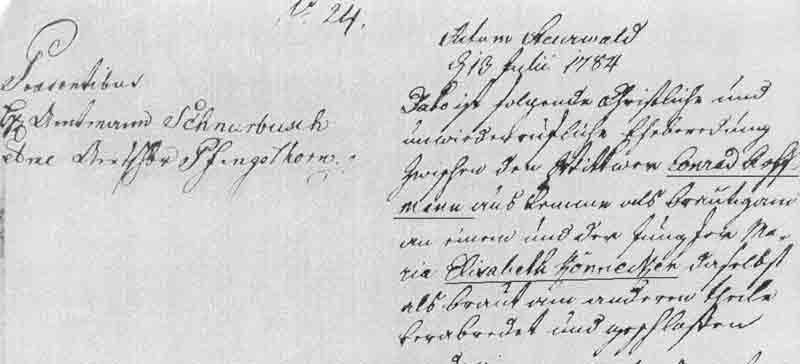 No. 24.
Praesentibus
Hr. Amtmann Schnurbusch
Amtsschr Pfingsthorn.
Actum Steurwald
d 13 Julii 1784
Dato ist folgende Christliche und
unwiederrufliche Eheberedung
zwischen dem Wittwer Conrad Hoff
mann aus Lemme als Bräutigam
an einem und der Jungfer Ma-
ria Elisabeth Könnecken daselbst
als Braut am anderen Theile
verabredet und geschlossen